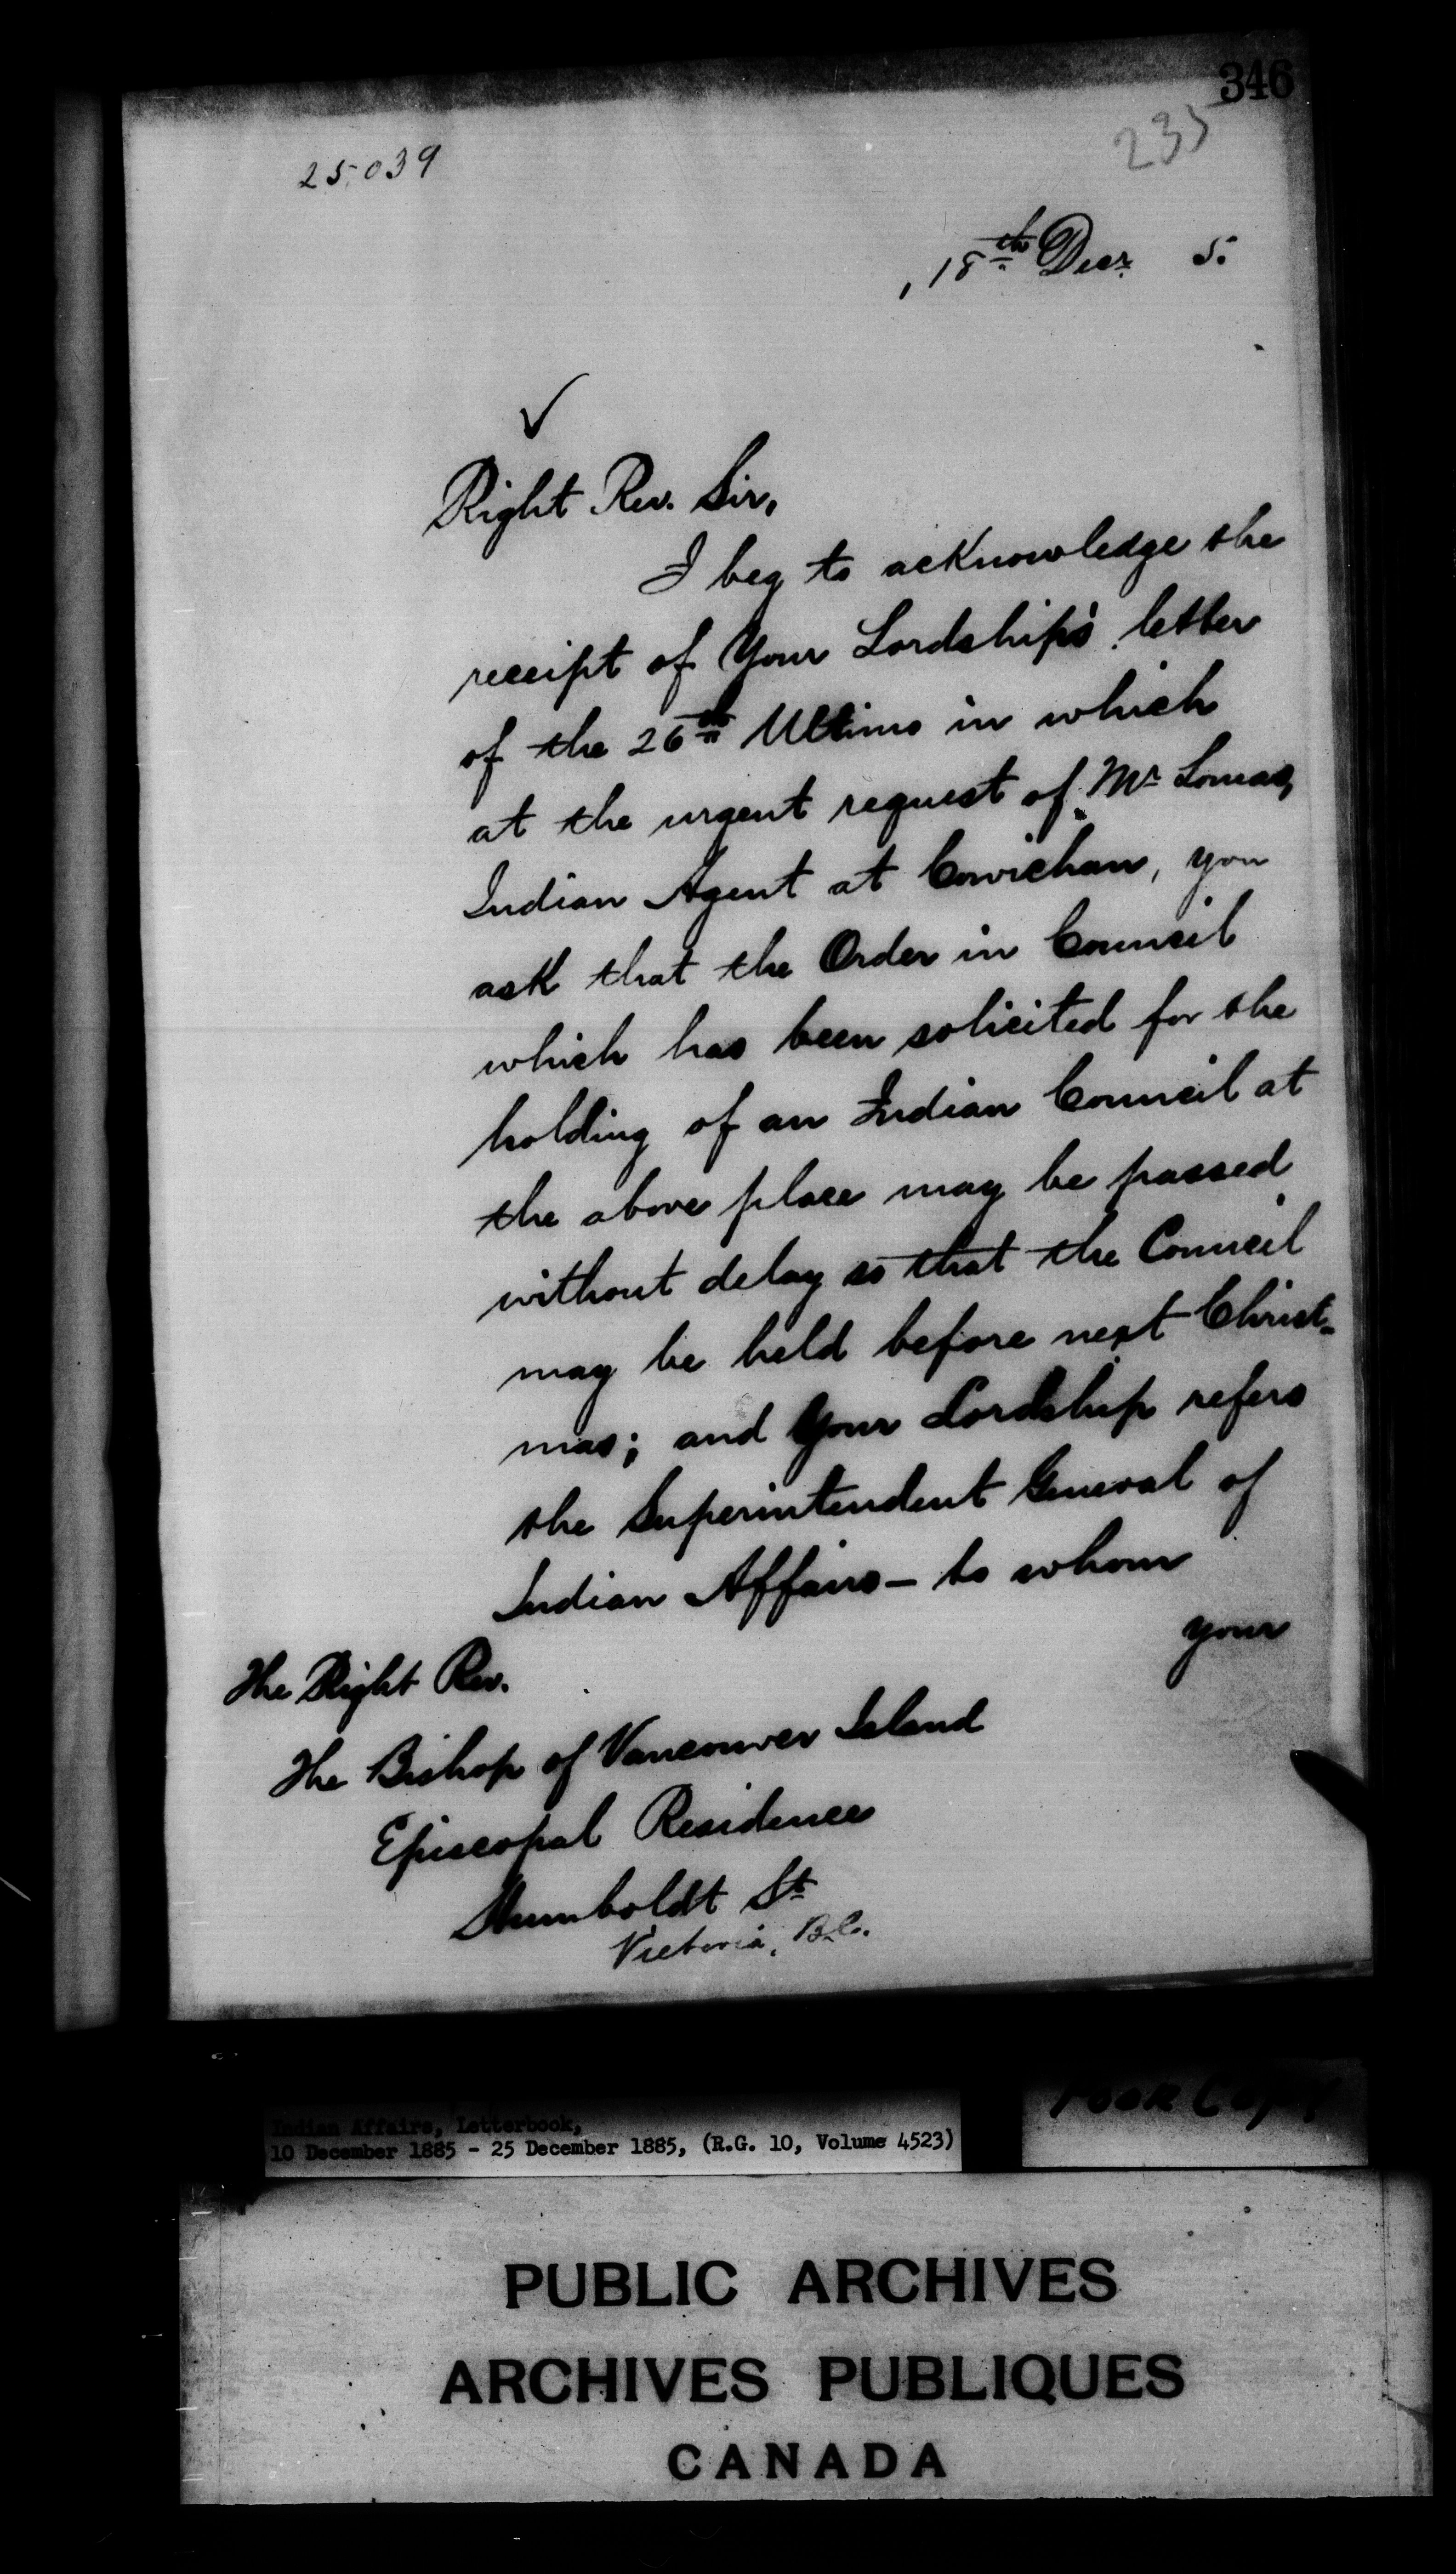 346
235
25,039
, 18th Decr. 5.
Right Rev. Sir,
I beg to acknowledge the
receipt of Your Lordship's letter
of the 26th Ultimo in which
at the urgent request of Mr Lomas,
Indian Agent at Cowichan, you
ask that the Order in Council
which has been solicited for the
holding of an Indian Council at
the above place may be passed
without delay so that the Council
may be held before next Christ-
mas; and Your Lordship refers
the Superintendent General of
Indian Affairs – to whom
your
The Right Rev.
The Bishop of Vancouver Island
Episcopal Residence
Humboldt St
Victoria, B.C.
Poor Copy
Indian Affairs, Letterbook,
10 December 1885 - 25 December 1885, (R.G. 10, Volume 4523)
PUBLIC ARCHIVES
ARCHIVES PUBLIQUES
CANADA